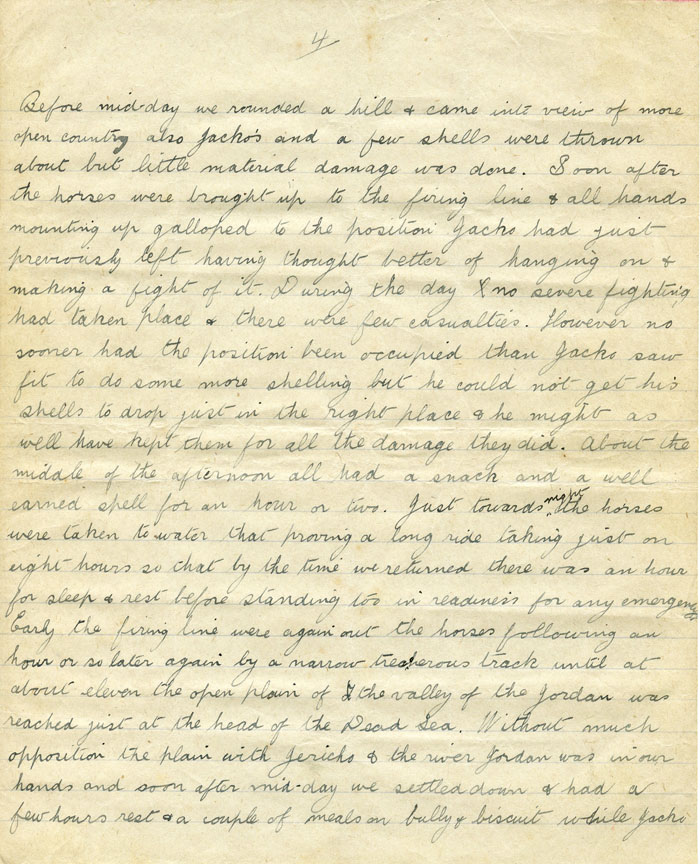 4
Before mid-day we rounded a hill & came into view of more
open country also Jacko's and a few shells were thrown
about but little material damage was done. Soon after
the horses were brought up to the firing line & all hands
mounting up galloped to the position Jacko had just
previously left having thought better of hanging on &
making a fight of it. During the day no severe fighting
had taken place & there were few casualties. However no
sooner had the position been occupied than Jacko saw
fit to do some more shelling but he could not get his
shells to drop just in the right place & he might as
well have kept them for all the damage they did. About the
middle of the afternoon all had a snack and a well
earned spell for an hour or two. Just towards night the horses
were taken to water that proving a long ride taking just on
eight hours so that by the time we returned there was an hour
for sleep & rest before standing too in readiness for any emergency
Early the firing line were again out the horses following an
hour or so later again by a narrow treacherous track until at
about eleven the open plain of the valley of the Jordan was
reached just at the head of the Dead Sea. Without much
opposition the plain with Jericho & the river Jordan was in our
hands and soon after mid-day we settled down & had a
few hours rest & a couple of meals on bully & biscuit while Jacko